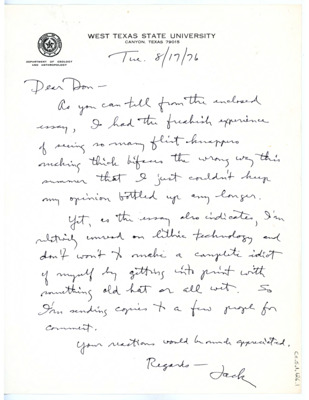 WEST TEXAS STATE UNIVERSITY
CANYON, TEXAS 79016
DEPARTMENT OF GEOLOGY
AND ANTHROPOLOGY
Tue. 8/17/76
Dear Don—
As you can tell from the enclosed
essay, I had the freakish experience
of seeing so many flint knappers
making thick bifaces the wrong way this
summer that I just couldn't keep
my opinion bottled up any longer.
Yet, as the essay also indicates, I'm
relatively unread on lithic technology and
don't want to make a complete idiot
of myself by getting into print with
something old hat or all wet. So
I'm sending copies to a few people for
comment.
Your reactions would be much appreciated.
Regards—
Jack